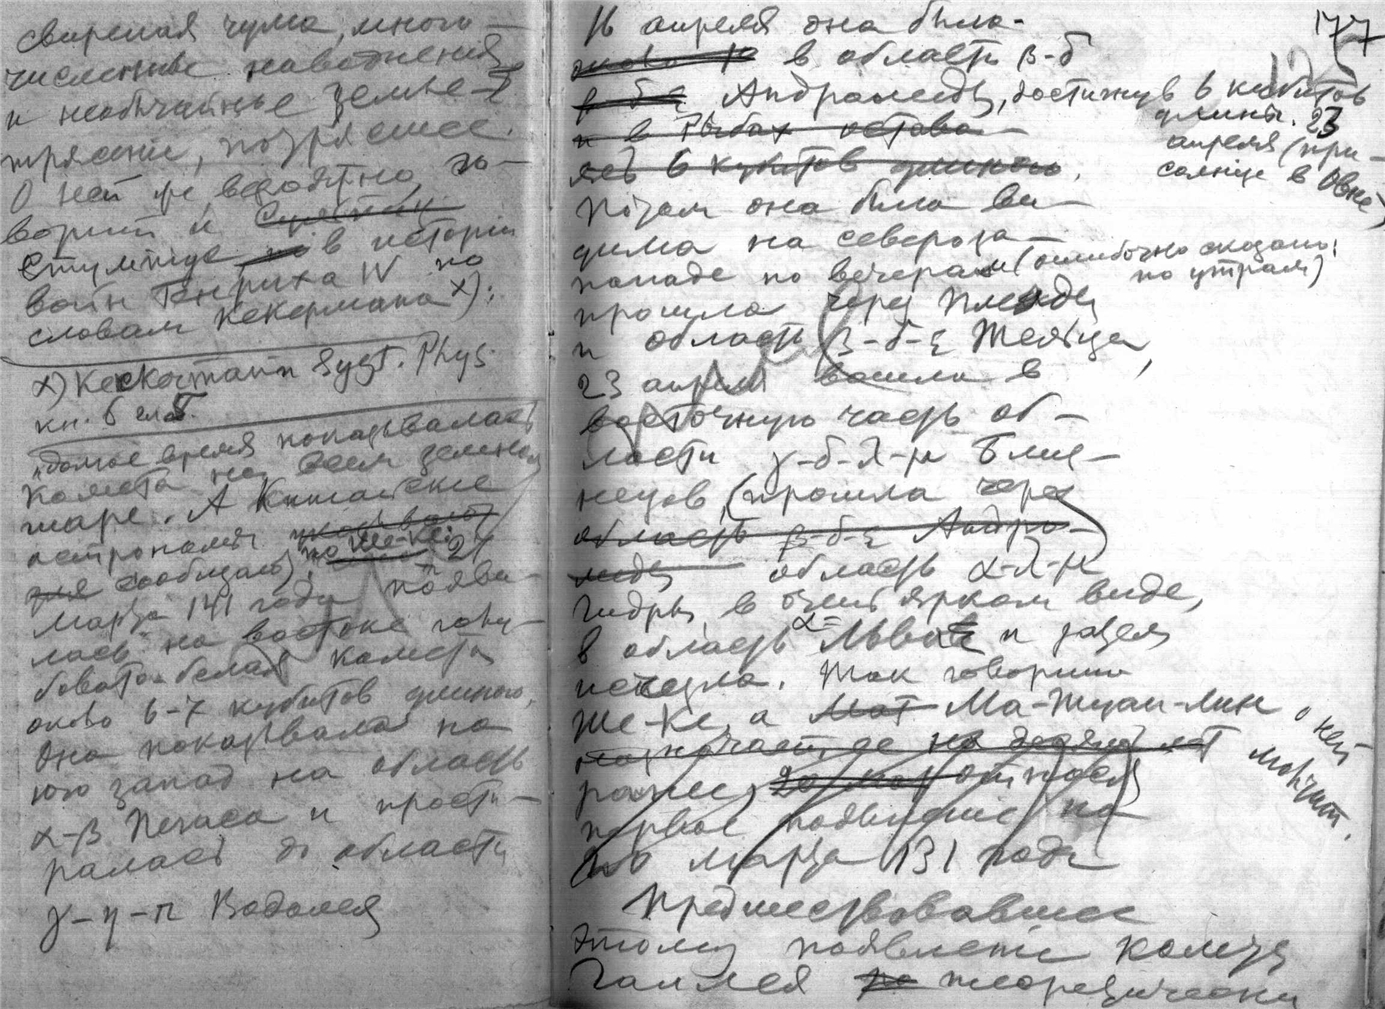 свирепая чума, много-
численные наводнения
и необычайные землет-
трясение, позднее.
О ней же, вероятно, го-
ворит и
в истории
войн Генриха IV по
словам Кекермана х):
х) Кеккерманн Syst. Phys.
кн. 6 гл. 5.
время показывалась
Комета на всем земном
шаре. А Китайские
астрономы указывают
сообщают, по Ше-Ке: 27
Марта 141 года появи-
лась на востоке голу-
бовато-белая комета
около 6-7 кубитов длиною.
Она показывала на
юго запад на область
α-β Пегаса и прости-
ралась до области
γ-η-π Водолея
177
16 апреля она была
около в область β-δ
Андромеды, достигнув 6 кубитов
длины. 23
и в Рыбах остава-
апреля (при
ясь 6 кубитов длиною.
солнце в Овне)
Потом она была ви-
дима на северо за-
паде по вечерам (ошибочно сказано:
по утрам)
прошла через Плеяды
и область β-δ-ε Тельца,
23 апреля вошла в
восточную часть об-
ласти γ-δ-λ-μ Близ-
нецов, (прошла через
область β-δ-ε Андро-
меды область α-λ-μ
Гидры, в очень ярком виде,
в область α Льва и затем
исчезла. Так говорит
Ше-Ке, а Мат Ма-Туан-Лин о ней
молчит.
ранее,
первое появление на
марта 131 года
Предшествовавшее
этому появление кометы
Галлея теоретически